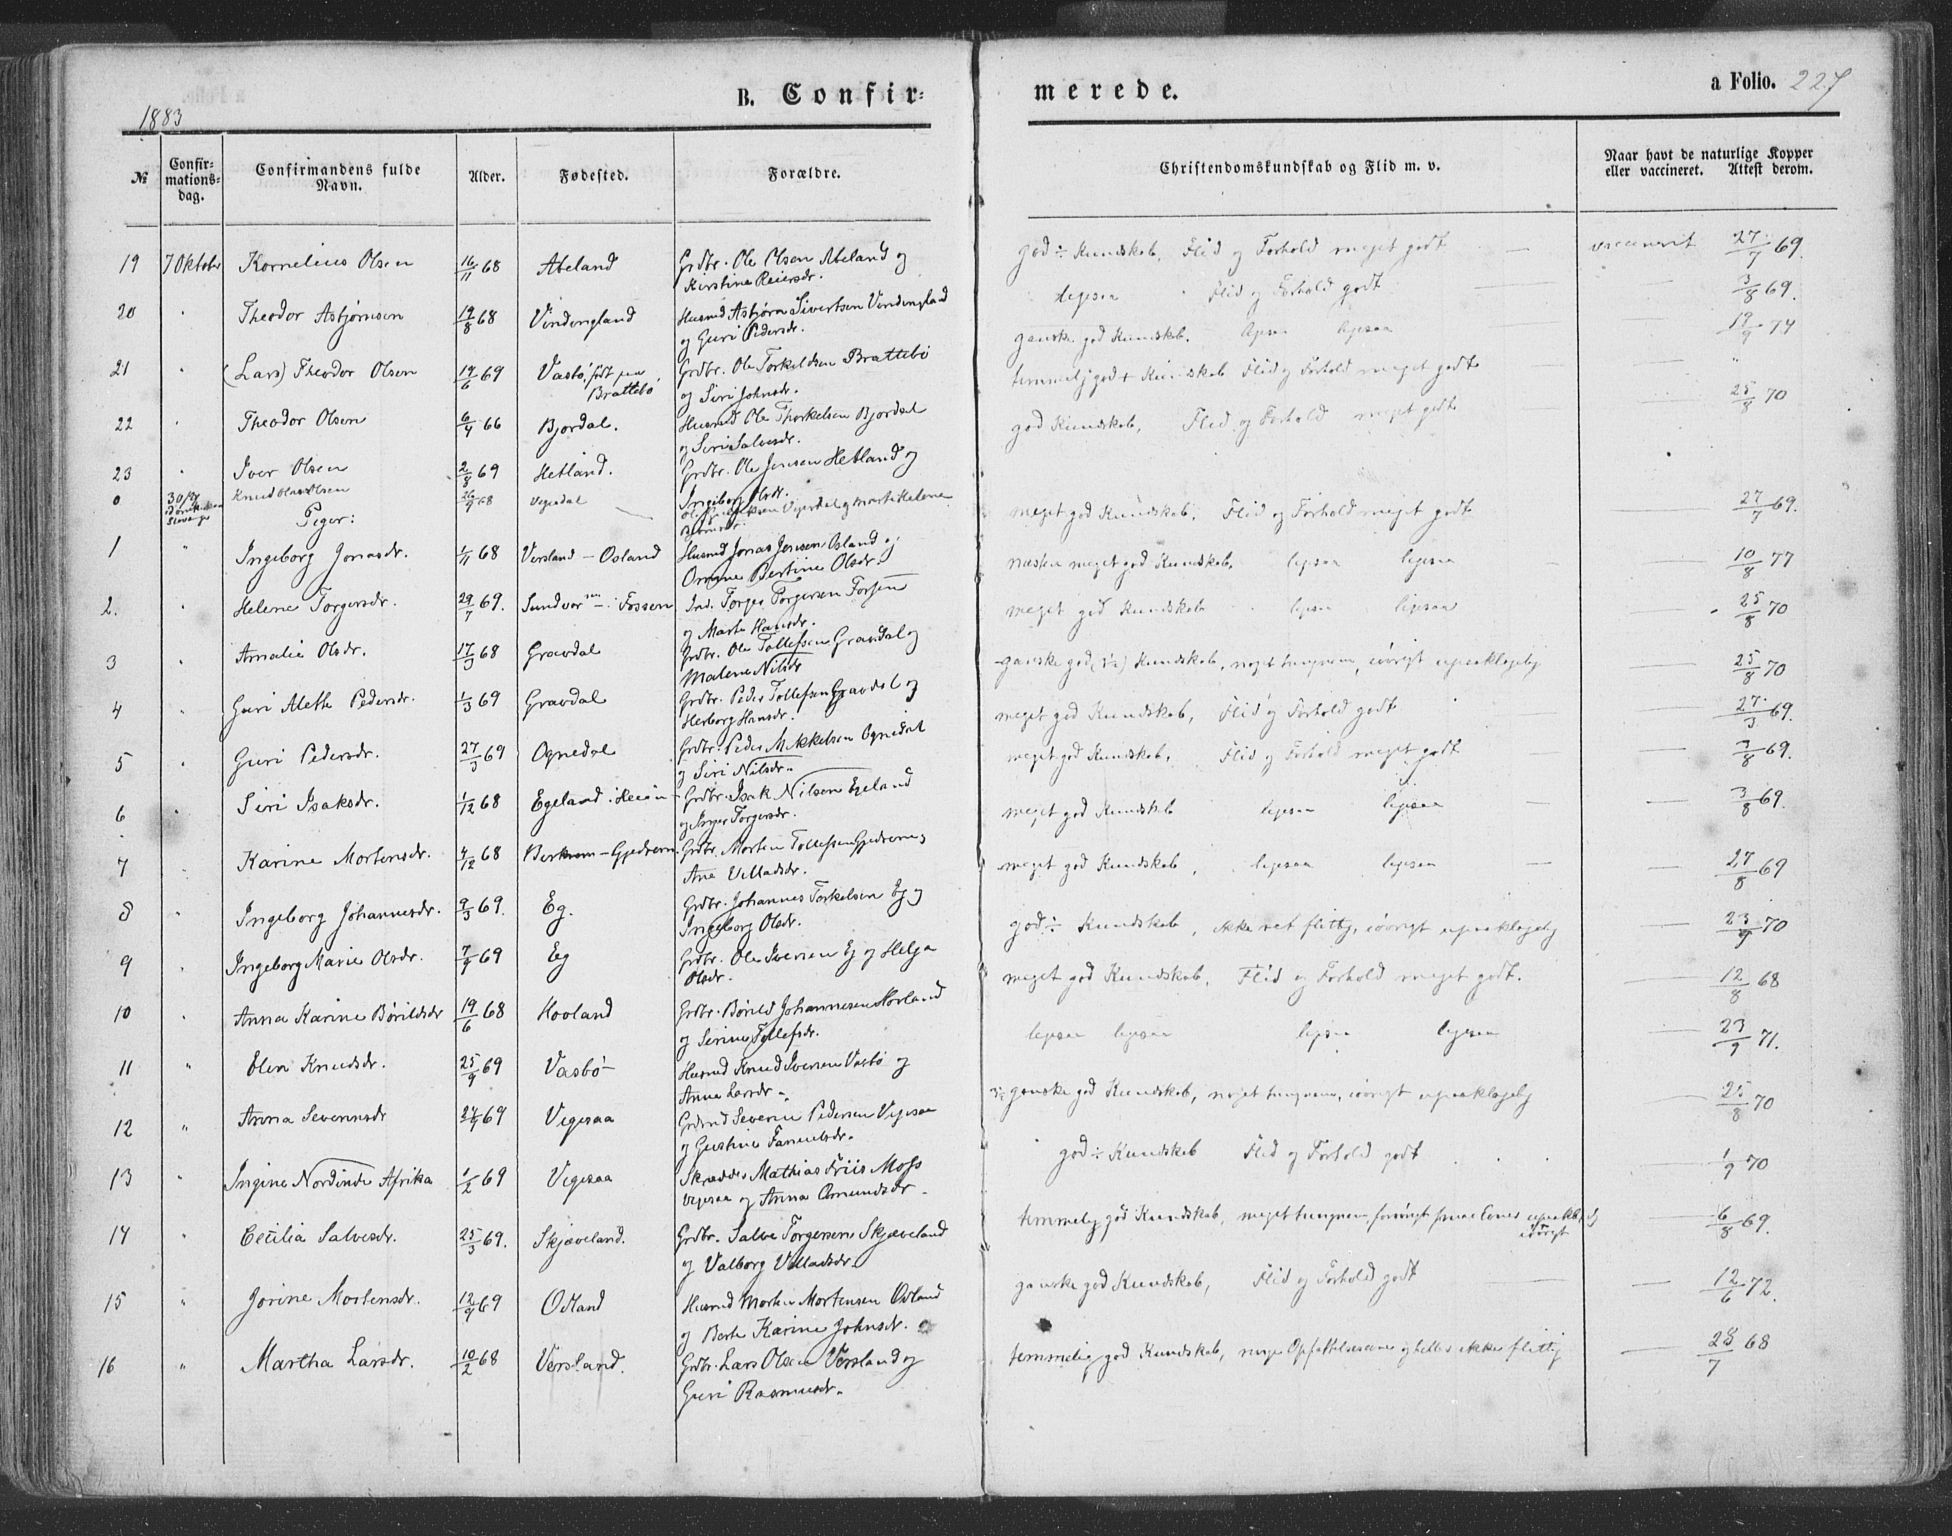 B. Confir-
merede.
a Folio. 227
1883
№
Confir-
mations-
dag.
Confirmandens fulde
Navn.
Alder.
Fødested.
Forældre.
Christendomskundskab og Flid m. v.
Naar havt de naturlige Kopper
eller vaccineret. Attest derom.
19 7 Oktober Kornelius Olsen 16/11 68 Abeland Grdbr. Ole Olsen Abeland og
Kirstine Reiersdr.
god ÷ Kundskab, Flid og Forhold meget godt — vaccinerit 27/7 69.
20 " Theodor Asbjørnsen 19/8 68 Vindingland Husmd Asbjørn Sivertsen Vindingland
og Guri Pedersdr.
ligesaa Flid og Forhold godt 3/8 69.
21 " (Lars) Theodor Olsen 14/6 69 Vasbø, født paa
Brattebø
Grdbr. Ole Torkeldsen Brattebø
og Siri Johnsdr.
ganske god Kundskab. ligesaa ligesaa 19/9 74
22 " Theodor Olsen 6/4 66 Bjordal. Husmd Ole Thorkelsen Bjordal
og Siri Salvesdr.
temmelig god + Kundskab Flid og Forhold meget godt — "
23 " Iver Olsen 2/8 69 Hetland. Grdbr. Ole Jensen Hetland og
Ingeborg Olsdr.
god Kundskab, Flid og Forhold meget godt 25/8 70
0 Knud Olaus Olsen 26/9 68 Vegesdal
Piger:
meget god Kundskab. Flid og Forhold meget godt 27/7 69.
1 " Ingeborg Jonasdr. 1/11 68 Versland – Osland Husmd Jonas Jensen Osland og
Omme Bertine Olsdr.
næsten meget god Kundskab. ligesaa ligesaa — 10/8 77
2. " Helene Torgersdr. 29/7 69. Sundvor – Fossen Ind. Torger Torgersen Forsen
og Marte Hansdr.
meget god Kundskab ligesaa ligesaa 25/8 70
3 " Amalie Olsdr. 17/3 68 Gravdal Grdbr. Ole Tollefsen Gravdal og
Malene Nilsdr
ganske god (3½) Kundskab, noget tungnem, iøvrigt upaaklagelig 25/8 70
4 " Guri Alethe Pedersdr. 1/3 69 Gravdal Grdbr. Peder Tollefsen Gravdal og
Herborg Hansdr.
meget god Kundskab, Flid og Forhold godt 27/3 69.
5 " Guri Pedersdr. 27/3 69 Ognedal Grdbr. Peder Mikkelsen Ognedal
og Siri Nilsdr.
meget god Kundskab, Flid og Forhold meget godt — 3/8 69.
6 " Siri Isaksdr. 1/12 68 Egeland i Heien Grdbr. Isak Nilsen Egeland
og Inger Torgersdr.
meget god Kundskab ligesaa ligesaa — 3/8 69.
7 " Karine Mortensdr. 4/12 68 Berkrem – Gjedrem Grdbr. Morten Tollefsen Gjedrem og
Ane Villadsdr.
meget god Kundskab, ligesaa ligesaa — 27/8 69
8 " Ingeborg Johannesdr. 9/3 69. Eg. Grdbr. Johannes Torkelsen Eg og
Ingeborg Olsdr.
god ÷ Kundskab, ikke ret flittig, iøvrigt upaaklagelig 23/9 70
9 " Ingeborg Marie Olsdr. 7/9 69 Eeg Grdbr. Ole Iversen Eg og Helga
Olsdr.
meget god Kundskab, Flid og Forhold meget godt. 12/8 68
10 " Anna Karine Børildsdr 19/6 68 Hovland Grdbr. Børild Johannesen Hovland
og Serine Tollefsdr.
ligesaa ligesaa ligesaa ligesaa 23/9 71.
11 " Olen Knudsdr. 25/9 69 Vasbø Husmd Knud Iversen Vasbø og
Anna Larsdr.
ganske god Kundskab, noget tungnem, iøvrigt upaaklagelig 25/8 70
12 " Anna Severinsdr 69 Vegesaa Grdmd Severin Pedersen Vegesaa
og Gustine Samuelsdr.
god ÷ Kundskab Flid og Forhold godt 1/9 70
13 " Ingine Nordinde Afrika 1/2 69 Vegesaa Skrædder Mathias Friis Moss
Vegesaa og Anna Omundsdr.
temmelig god Kundskab, meget tungnem 6/8 69.
iøvrigt
14 " Cecilia Salvesdr. 25/3 69. Skjæveland. Grdbr. Salve Torgersen Skjæveland
og Valborg Villadsdr.
ganske god Kundskab, Flid og Forhold godt 12/6 72.
15 " Jorine Mortensdr. 12/9 69 Osland Husmd Morten Mortensen Osland
og Berte Karine Johnsdr.
16 " Martha Larsdr. 10/2 68 Versland. Grdbr. Lars Olsen Versland og
Guri Rasmusdr.
temmelig god Kundskab, ikke flittig — 28/7 68